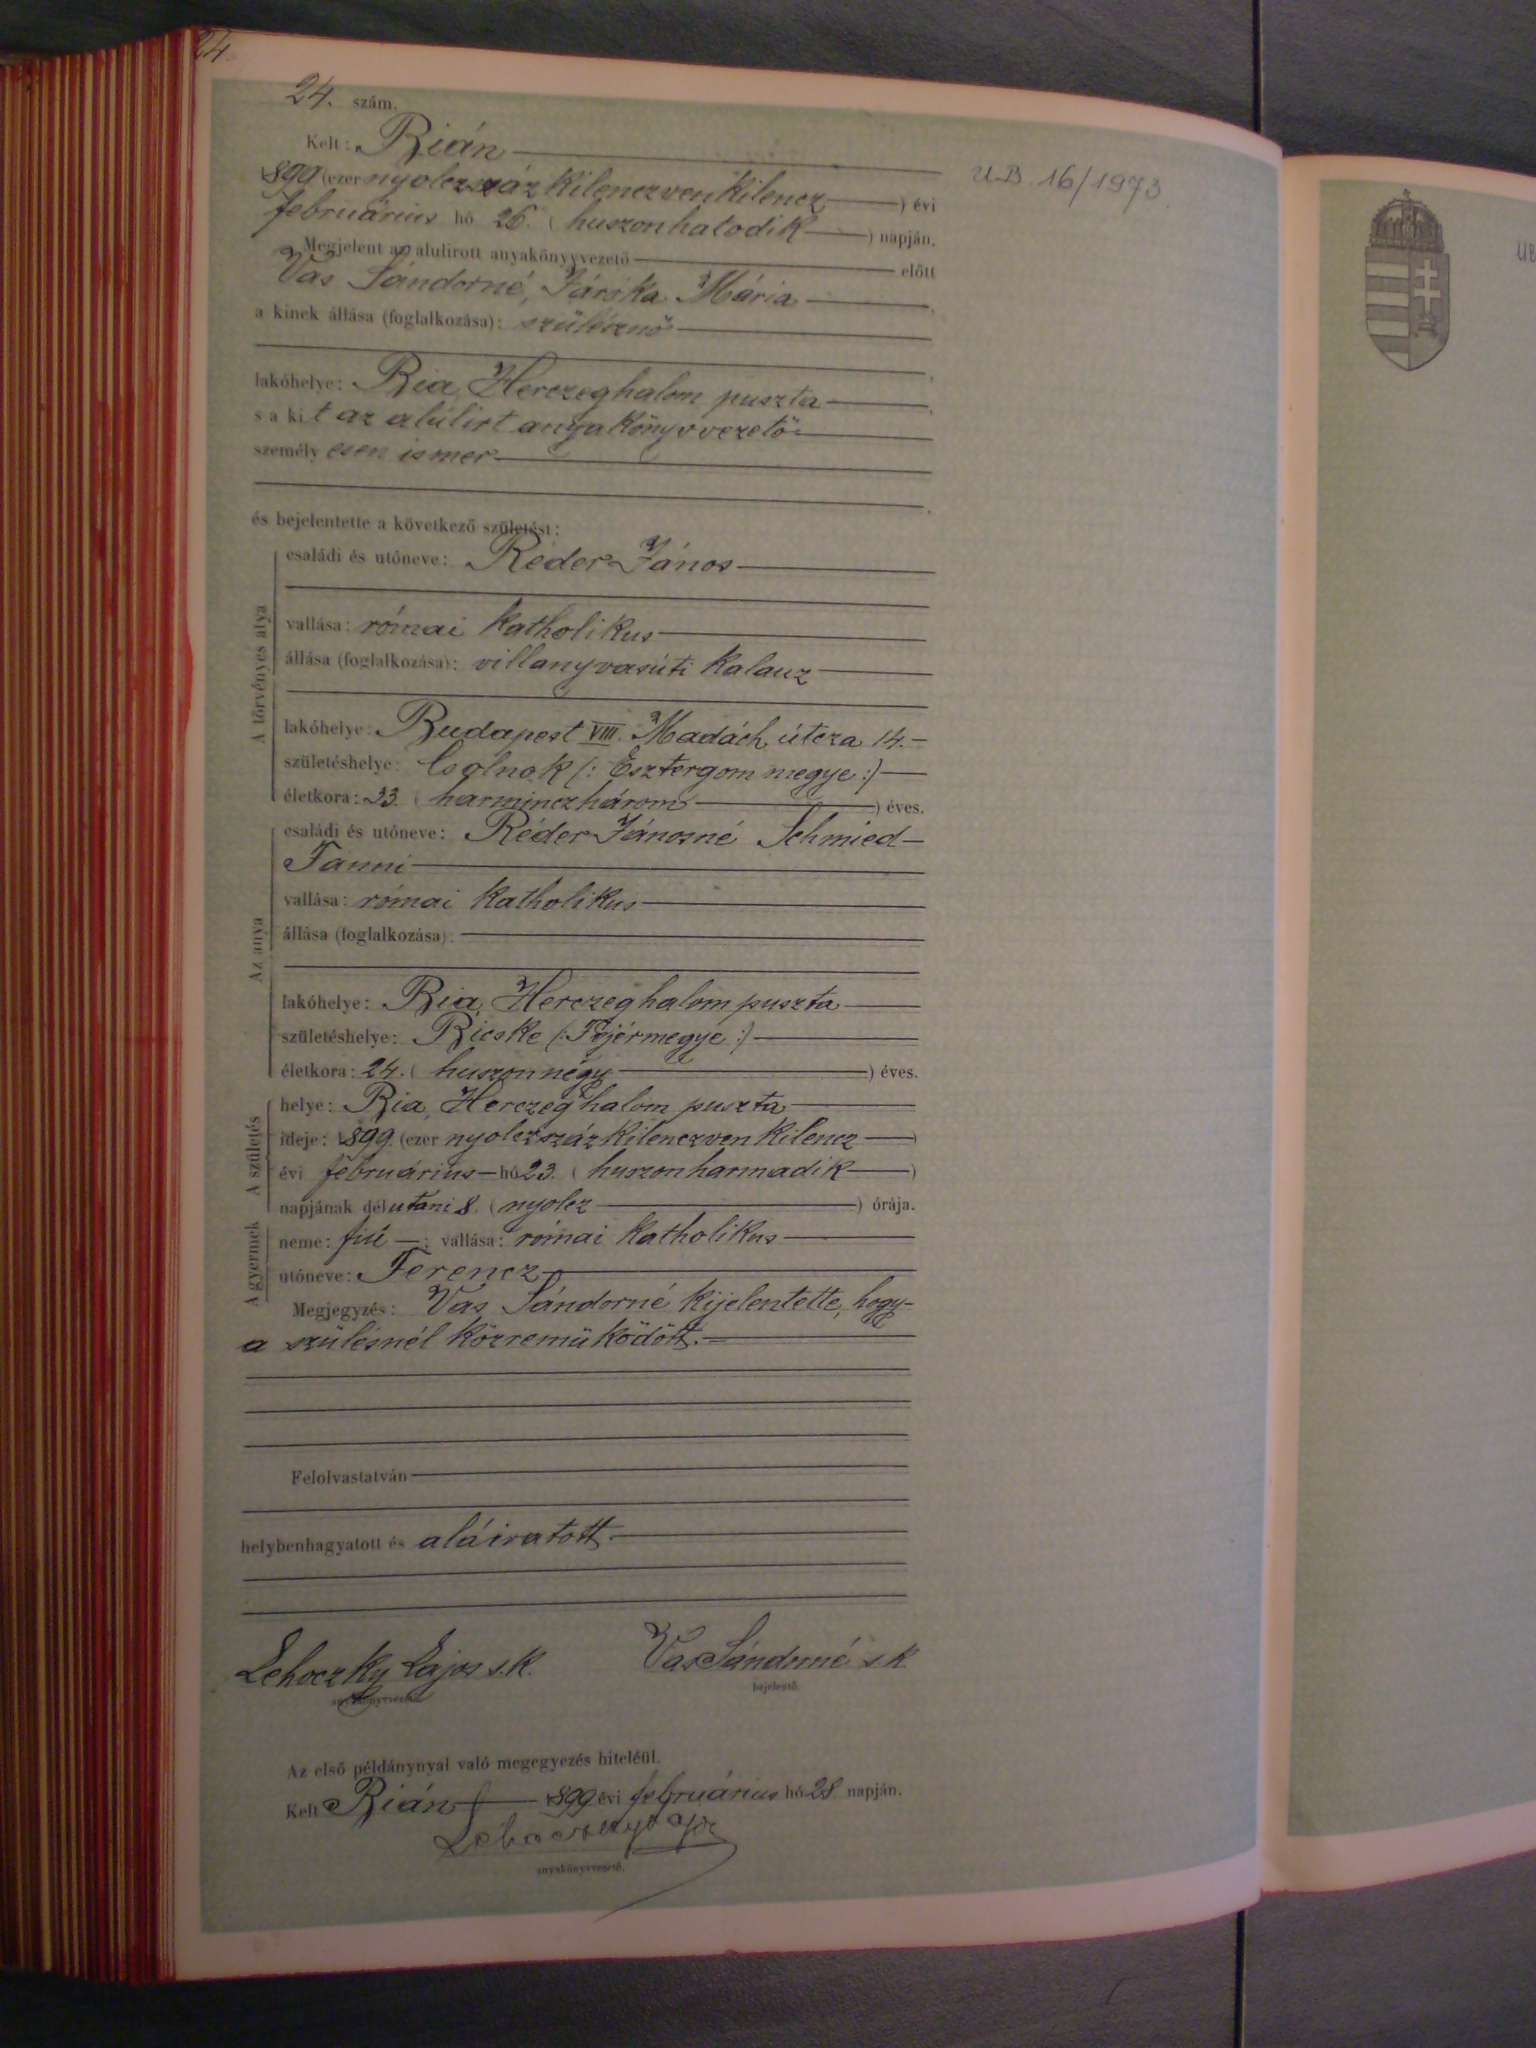 24.
24. szám.
Kelt: Bián
U.B. 16/1973
1899 (ezer nyolczszáz kilenczvenkilencz) évi
februárius hó 26. (huszonhatodik) napján.
Megjelent az alulirott anyakönyvvezető előtt
Vas Sándorné, Jároka Mária,
a kinek állása (foglalkozása): szülésznő
lakóhelye: Bia, Herczeghalom puszta,
s a kit az alúlirt anyakönyvvezető
személyesen ismer
és bejelentette a következő születést:
A törvényes atya
családi és utóneve: Réder János
vallása: római katholikus
állása (foglalkozása): villanyvasúti kalauz
lakóhelye: Budapest VIII. Madách útcza 14.
születéshelye: Csolnok (: Esztergom megye :)
életkora: 33. (harminczhárom) éves.
Az anya
családi és utóneve: Réder Jánosné Schmied
Fanni
vallása: római katholikus
állása (foglalkozása):
lakóhelye: Bia, Herczeghalom puszta
születéshelye: Bicske (: Fejérmegye :)
életkora: 24. (huszonnégy) éves.
A születés
helye: Bia, Herczeghalom puszta
ideje: 1899. (ezer nyolczszáz kilenczven kilencz)
évi februárius hó 23. (huszonharmadik)
napjának délutáni 8. (nyolcz) órája.
A gyermek
neme: fiú; vallása: római katholikus
utóneve: Ferencz
Megjegyzés: Vas Sándorné kijelentette, hogy
a szülésnél közremüködött.
Felolvastatván
helybenhagyatott és aláiratott.
Lehoczky Lajos s.k. Vas Sándorné s.k.
anyakönyvvezető. bejelentő.
Az első példánynyal való megegyezés hiteléül.
Kelt Bián 1899 évi februárius hó 28. napján.
Lehoczky Lajos
anyakönyvvezető.